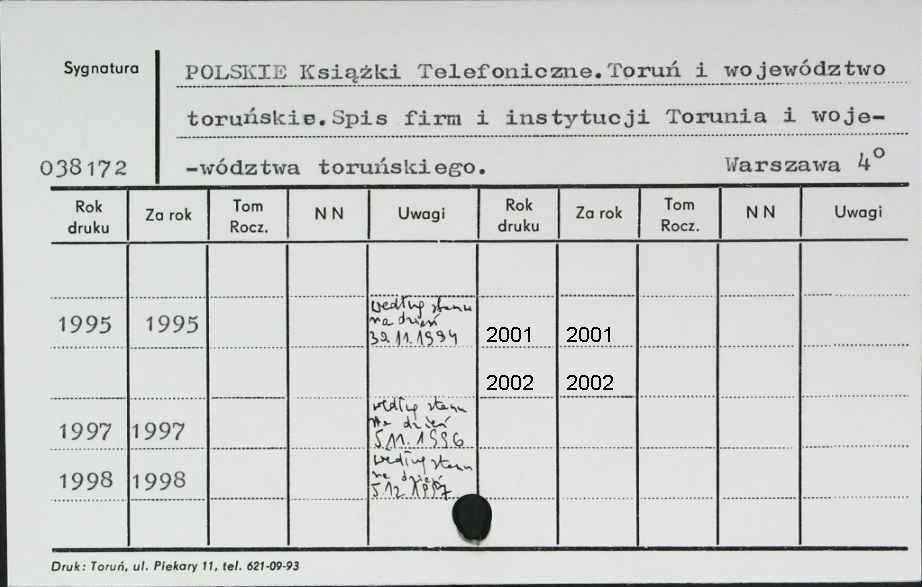 Sygnatura
POLSKIE Książki Telefoniczne.Toruń i województwo
toruńskie.Spis firm i instytucji Torunia i woje-
038172 -wództwa toruńskiego. Warszawa 4°
Rok druku Za rok Tom Rocz. N N Uwagi Rok druku Za rok Tom Rocz. N N Uwagi
według stanu
na dzień
1995 1995 30.11.1994 2001 2001
2002 2002
według stanu
na dzień
1997 1997 5.11.1996
według stanu
na dzień
1998 1998 5.12.1997
Druk: Toruń, ul. Piekary 11, tel. 621-09-93